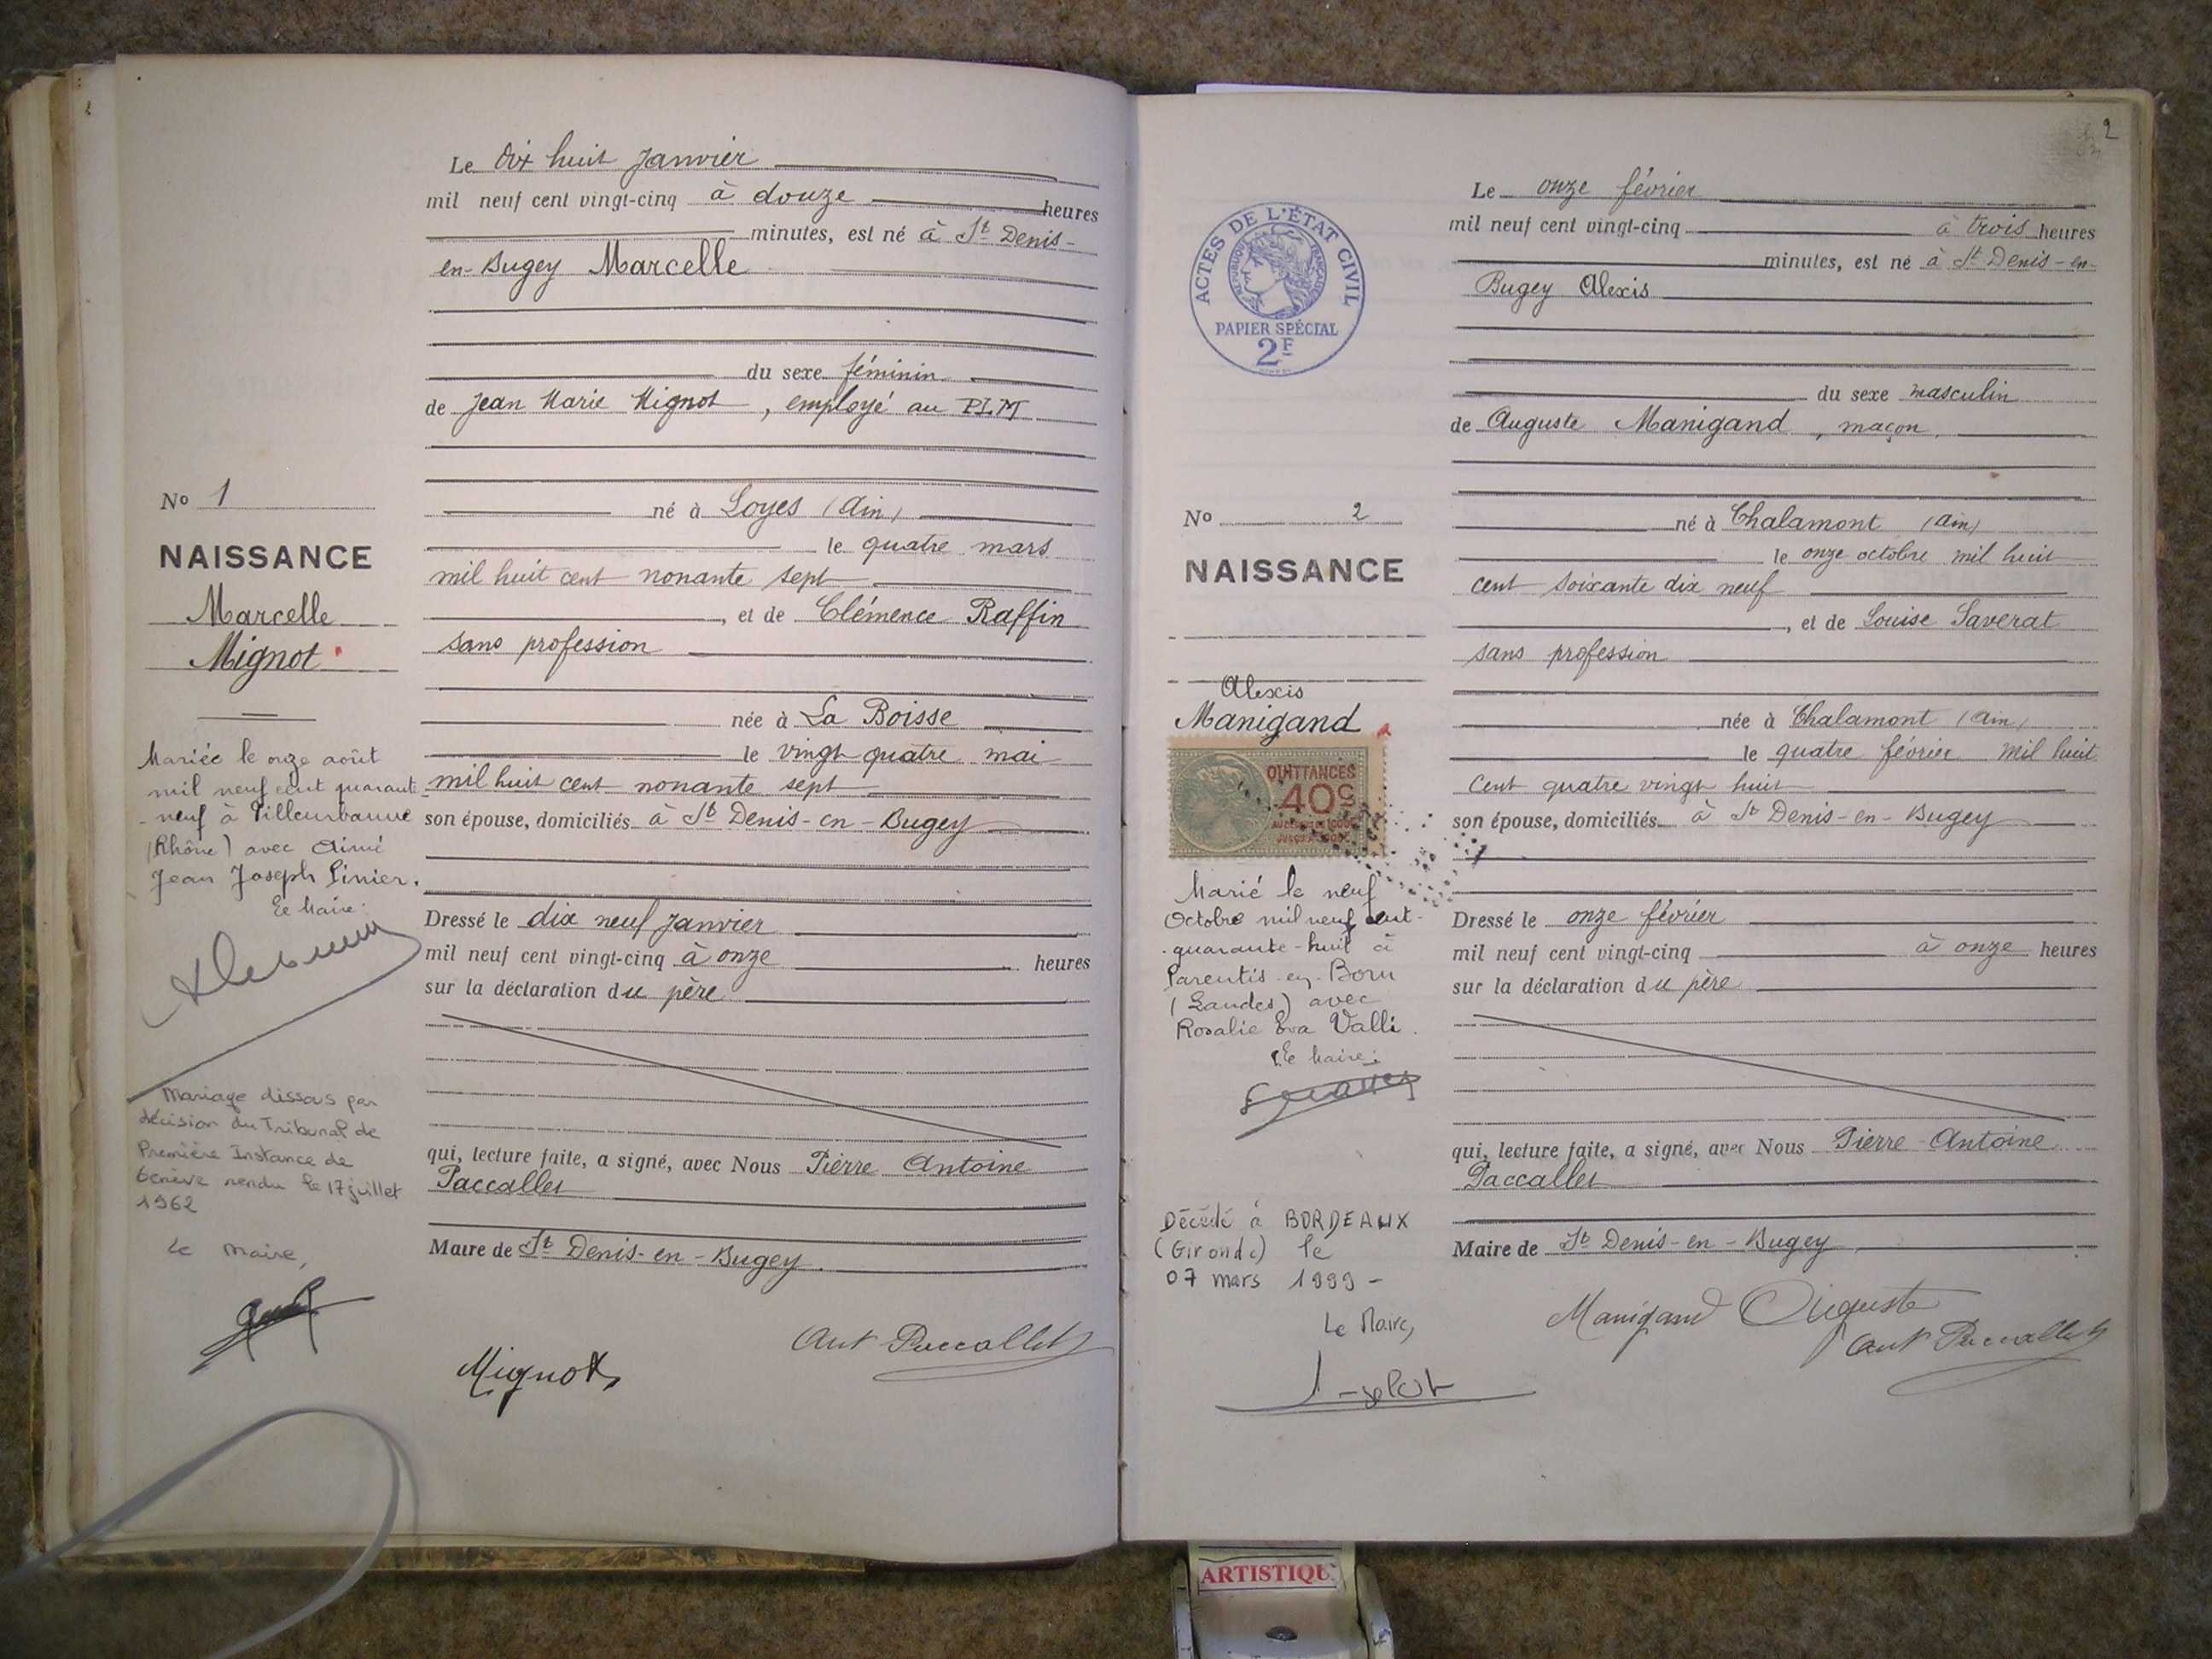 Le dix huit Janvier
mil neuf cent vingt-cinq à douze heures
minutes, est né à St Denis-
en-Bugey Marcelle
du sexe féminin
de Jean Marie Mignot, employé au PLM
né à Loyes (Ain)
le quatre mars
mil huit cent nonante sept
, et de Clémence Raffin
sans profession
née à La Boisse
le vingt quatre mai
mil huit cent nonante sept
son épouse, domiciliés à St Denis-en-Bugey
Dressé le dix neuf Janvier
mil neuf cent vingt-cinq à onze heures
sur la déclaration du père
qui, lecture faite, a signé, avec Nous Pierre Antoine
Paccallet
Maire de St Denis-en-Bugey.
Mignot
Ant Paccallet
No 1
NAISSANCE
Marcelle
Mignot
Mariée le onze août
mil neuf cent quarant
-neuf à Villeurbanne
(Rhône) avec Aimé
Jean Joseph Pinier.
Le Maire:
Mariage dissous par
décision du Tribunal de
Première Instance de
Genève rendu le 17 juillet
1962
Le Maire,
2
Le onze février
mil neuf cent vingt-cinq à trois heures
minutes, est né à St Denis-en-
Bugey Alexis
du sexe masculin
de Auguste Manigand, maçon
né à Chalamont (Ain)
le onze octobre mil huit
cent soixante dix neuf
, et de Louise Saverat
sans profession
née à Chalamont (Ain)
le quatre février mil huit
cent quatre vingt huit
son épouse, domiciliés à St Denis-en-Bugey
Dressé le onze février
mil neuf cent vingt-cinq à onze heures
sur la déclaration du père
qui, lecture faite, a signé, avec Nous Pierre Antoine
Paccallet
Maire de St Denis-en-Bugey
Manigand Auguste
Ant Paccallet
ACTES DE L'ÉTAT CIVIL
RÉPUBLIQUE FRANÇAISE
PAPIER SPÉCIAL
2F
No 2
NAISSANCE
Alexis
Manigand
QUITTANCES
40c
Marié le neuf
Octobre mil neuf cent-
quarante-huit à
Parentis-en-Born
(Landes) avec
Rosalie Eva Valli.
Le Maire:
Décédé à BORDEAUX
(Gironde) le
07 mars 1999-
Le Maire,
ARTISTIQU